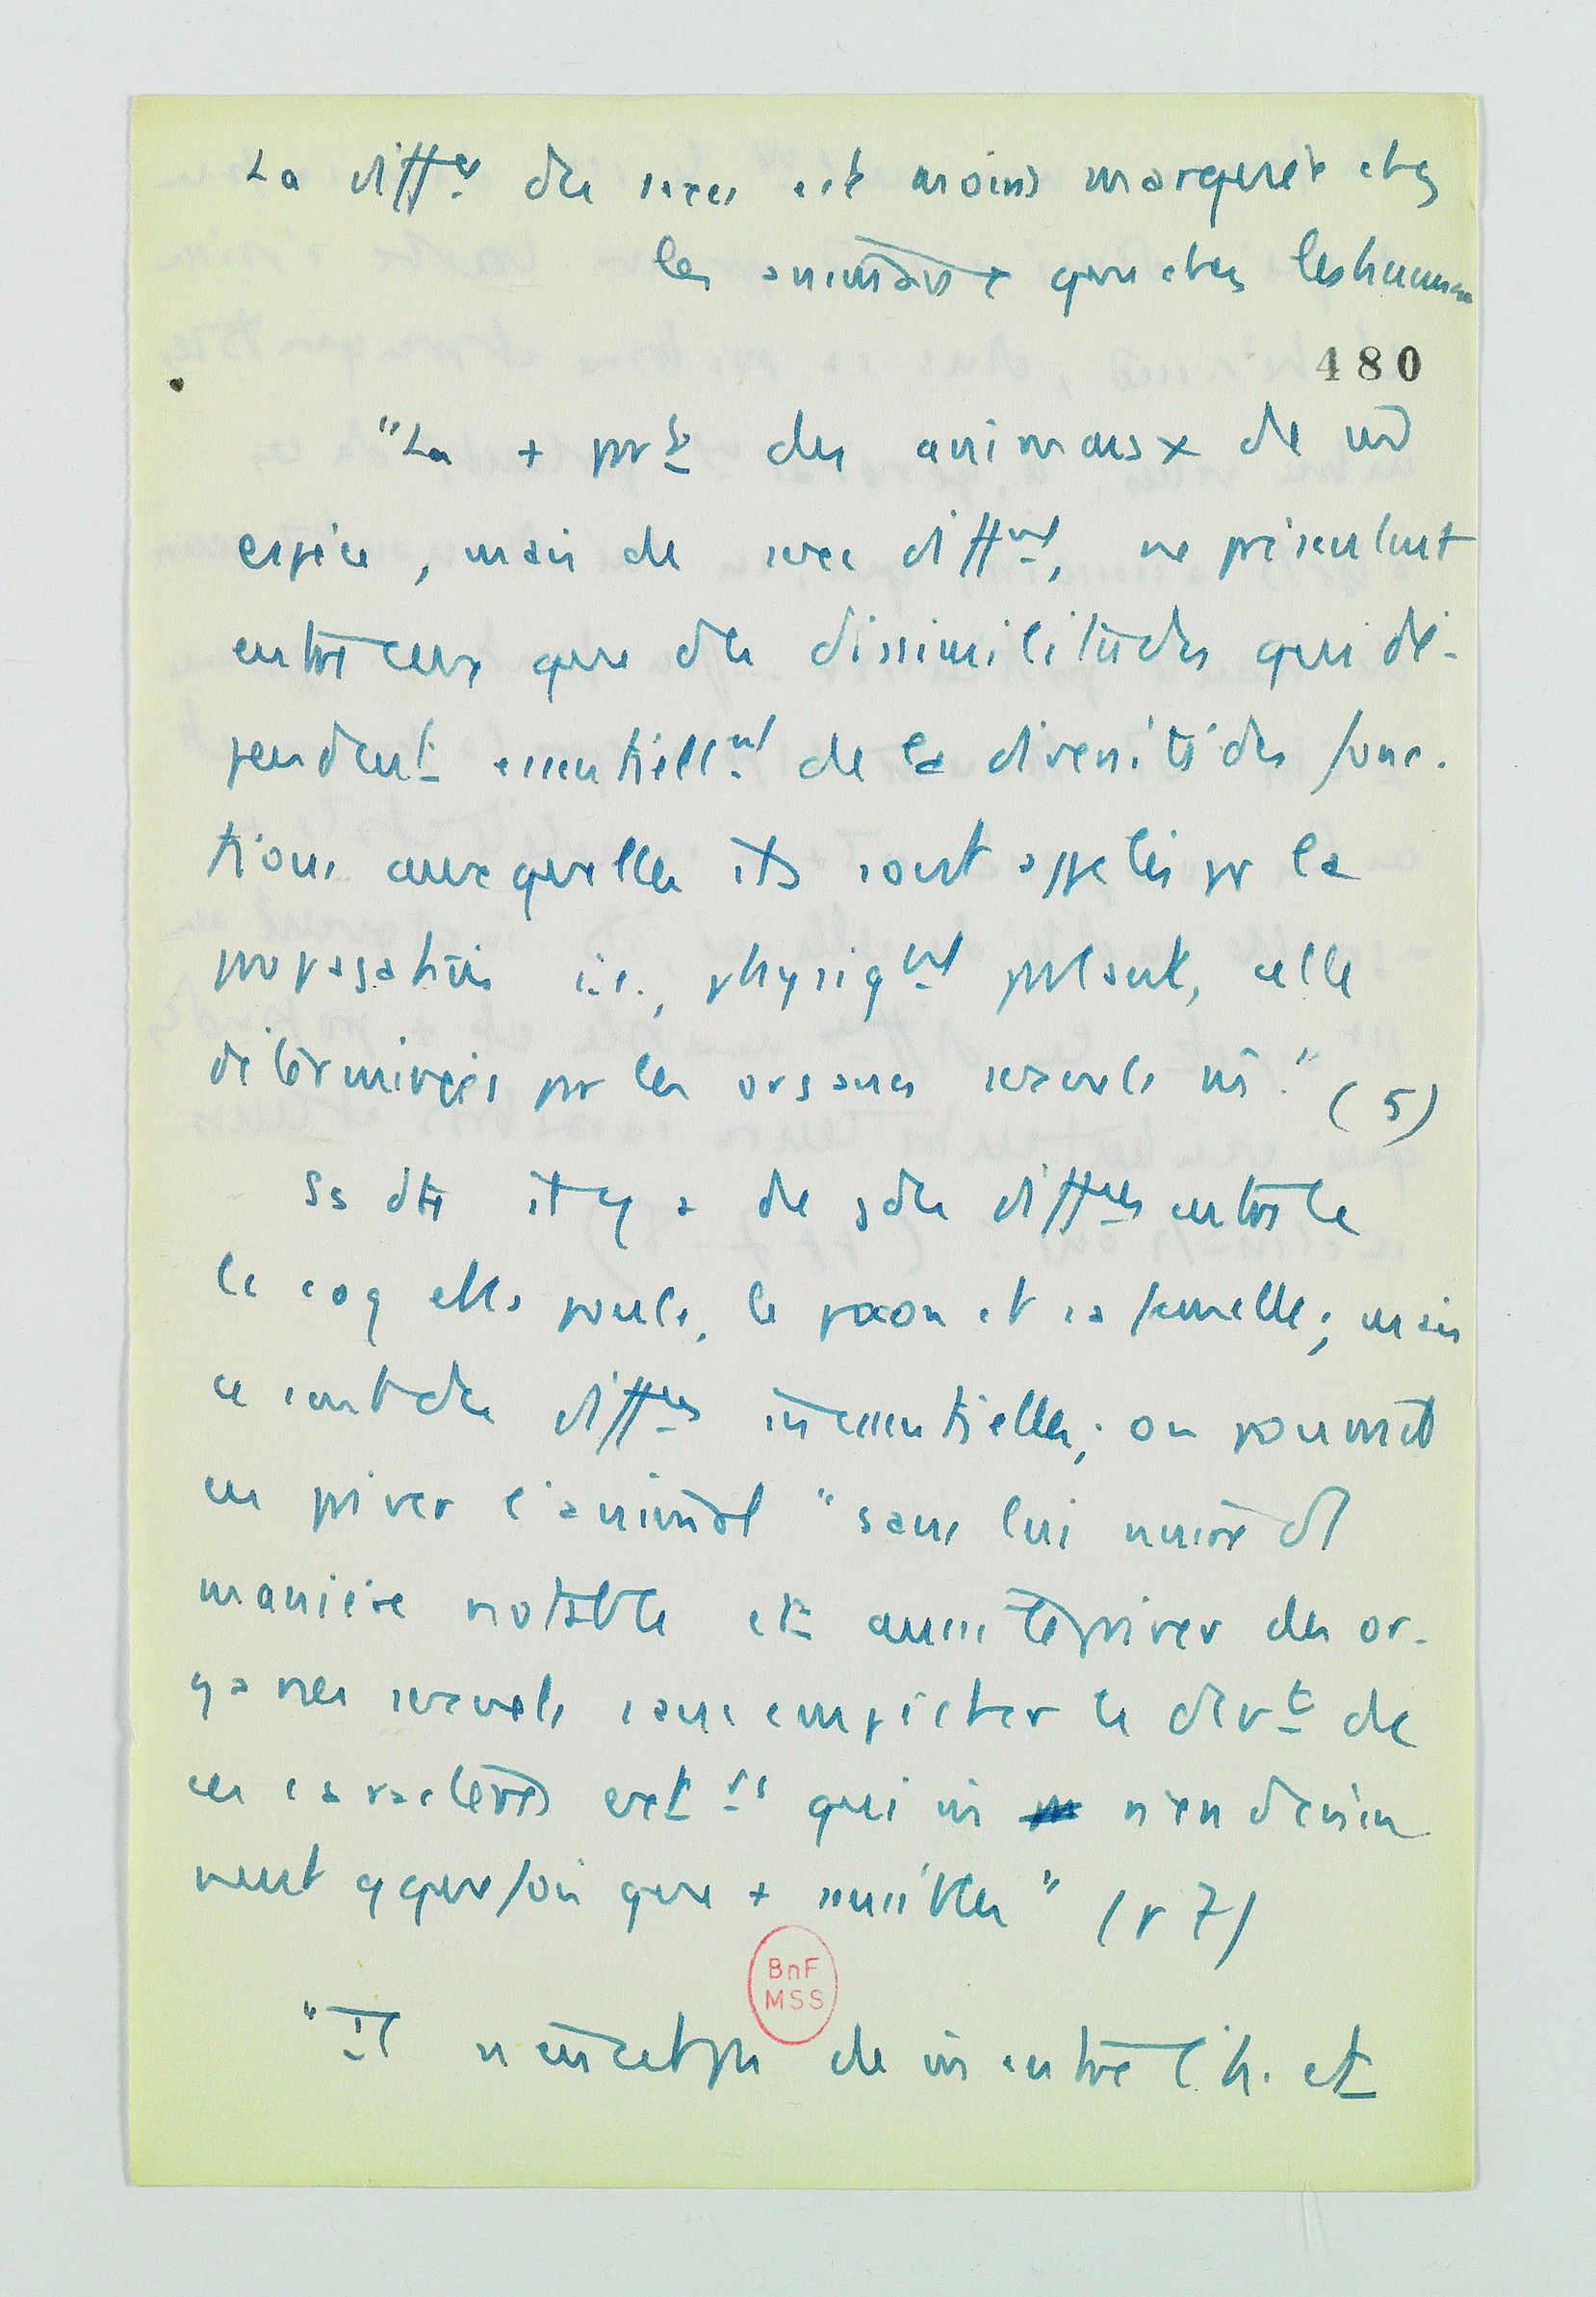 La diff^ce des sexes est moins marquée chez
les animaux que chez les humains
480
"La + pr^t des animaux de m̂
espèce, mais de sexe diff^nt, ne présentent
entre eux que des dissimilitudes qui dé-
pendent essentiell^nt de la diversité des fonc-
tions auxquelles ils sont appelés pr la
propagation i.e., physiq^nt parlant, celle
déterminées par les organes sexuels m̂." (5)
Ss dte il y a de gdes diff^ces entre le
le coq et la poule, le paon et sa femelle; mais
ce sont des diff^ces inessentielles; on pourrait
en priver l'animal "sans lui nuire d'
manière notable et aussi le priver des or-
ganes sexuels sans empêcher le dvt de
ces caractères ext^rs qui n'en devien
nent qquefois que + sensibles" (p 7)
"Il n'en est pas de m̂ entre l'h. et
BnF
MSS